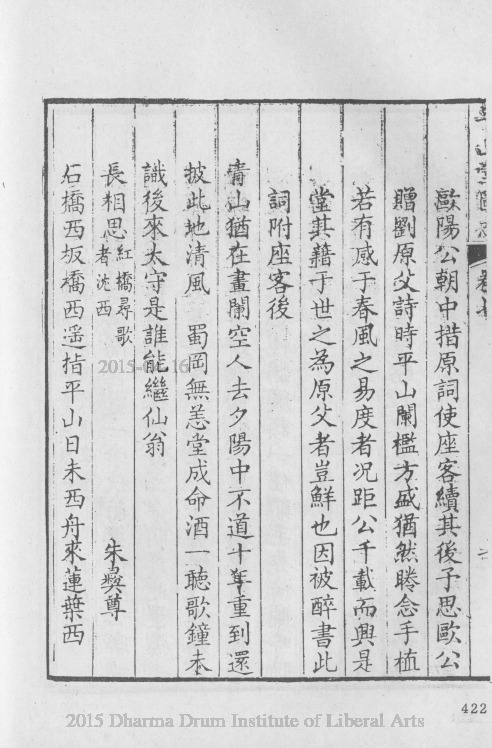 歐陽公朝中措原詞使座客續其後予思歐公
贈劉原父詩時平山闌檻方盛猶然睠念手植
若有感于春風之易度者况距公千載而興是
堂其藉于世之為原父者豈鮮也因被醉書此
詞附座客後
青山猶在畫闌空人去夕陽中不道十年重到還
披此地清風　蜀岡無恙堂成命酒一聴歌鐘本
識後來太守是誰能繼仙翁
長相思 紅橋尋歌者沈西 朱彝尊
石橋西坂橋西遥指平山日未西舟來蓮葉西
422
2015 Dharma Drum Institute of Liberal Arts